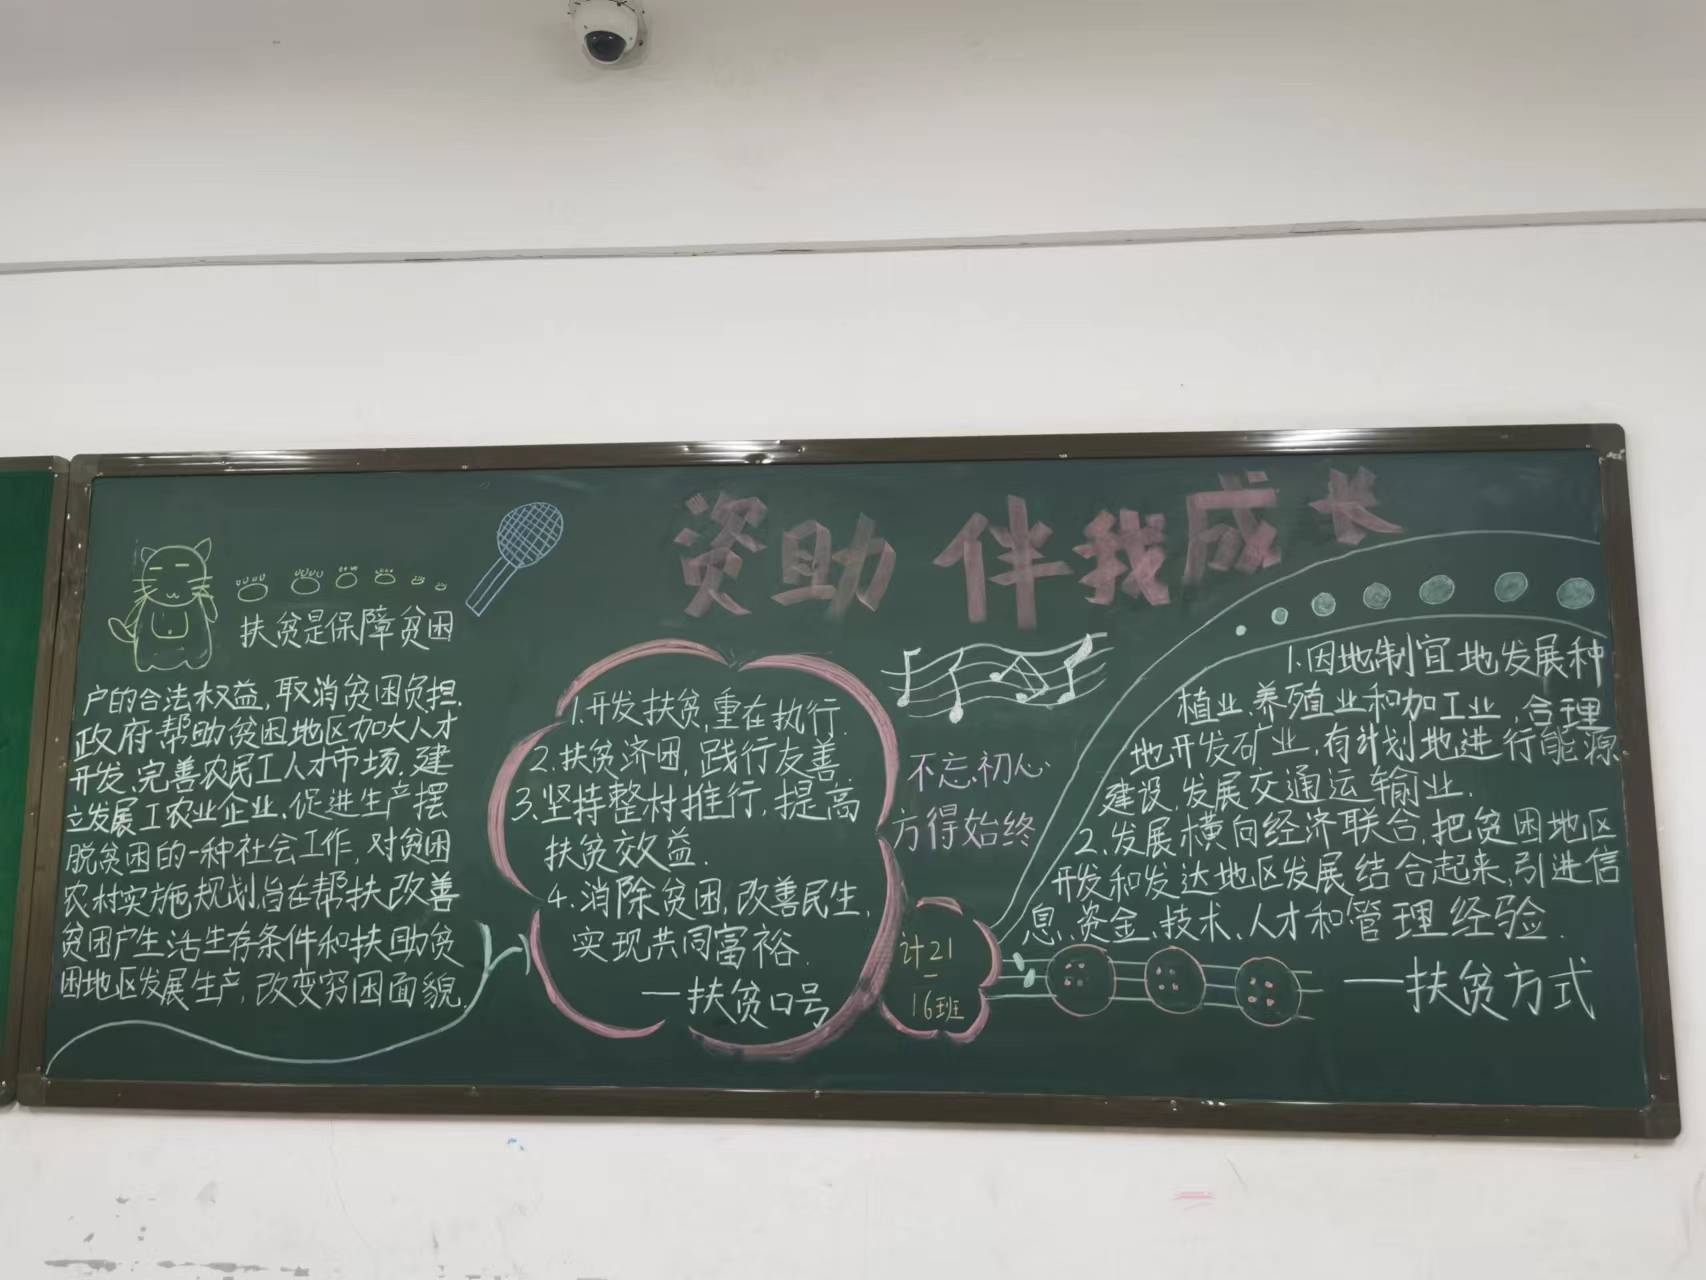 资助 伴我成长
扶贫是保障贫困
户的合法权益,取消贫困负担.
政府帮助贫困地区加大人才
开发,完善农民工人才市场,建
立发展工农业企业,促进生产摆
脱贫困的一种社会工作,对贫困
农村实施规划旨在帮扶改善
贫困户生活生存条件和扶助贫
困地区发展生产,改变穷困面貌.
1.开发扶贫,重在执行.
2.扶贫济困,践行友善
3.坚持整村推行,提高
扶贫效益.
4.消除贫困,改善民生,
实现共同富裕.
—扶贫口号
不忘初心
方得始终
计21
—
16班
1.因地制宜地发展种
植业、养殖业和加工业,合理
地开发矿业,有计划地进行能源
建设,发展交通运输业.
2.发展横向经济联合,把贫困地区
开发和发达地区发展结合起来,引进信
息、资金、技术、人才和管理经验.
—扶贫方式